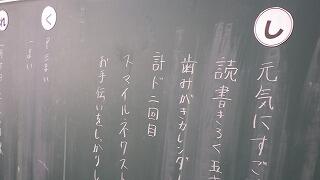 し
元気にすご
読書きろく五
歯みがきカレンダー
計ド二回目
スマイルネクスト
お手伝いをしっかりし
く
れ